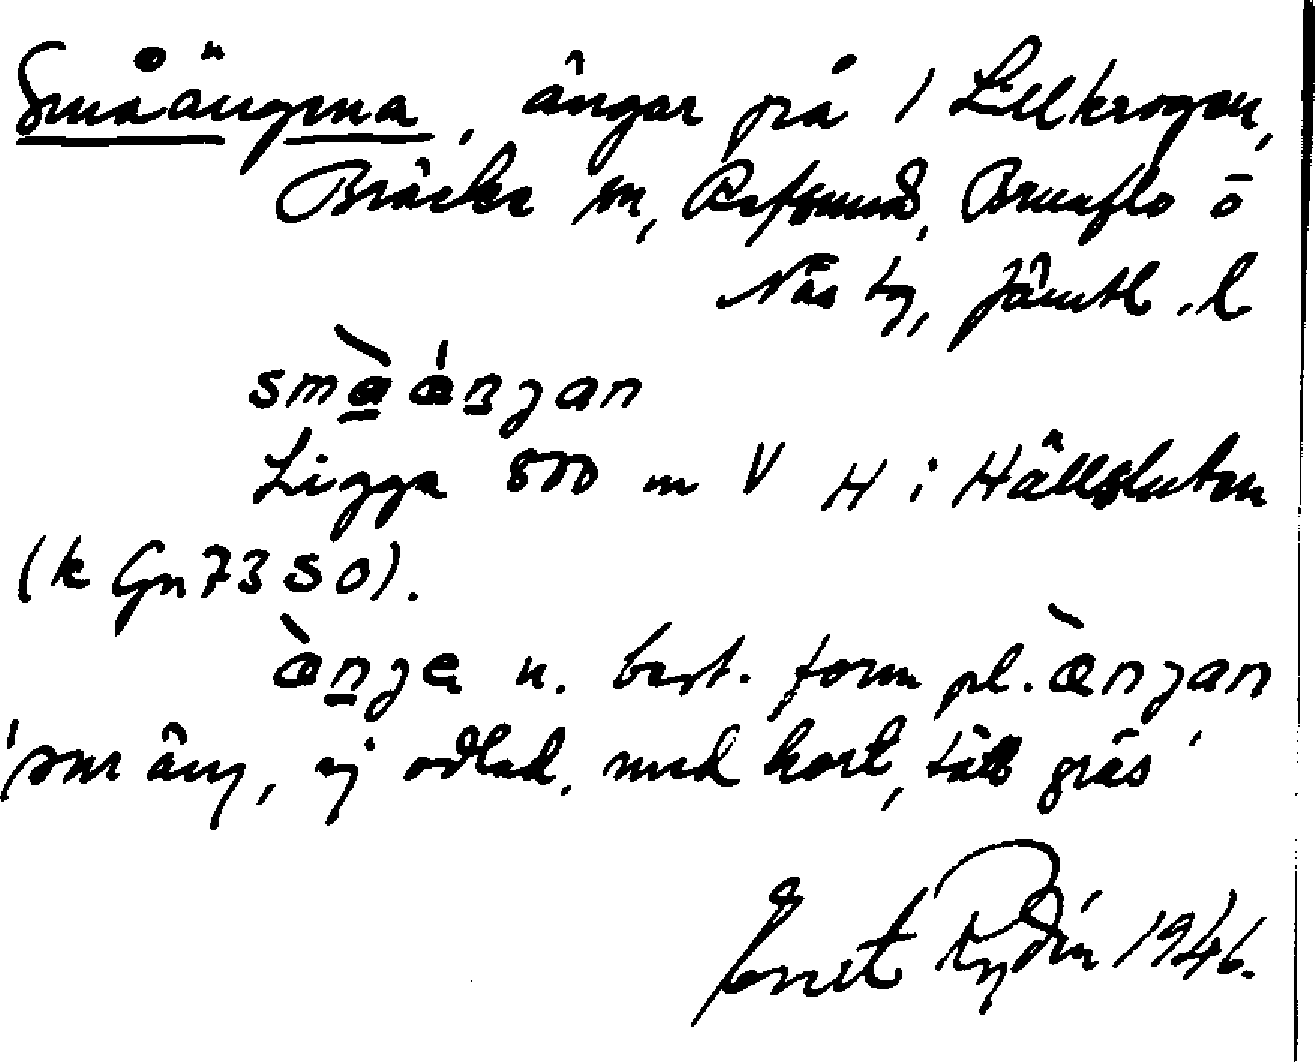 Småängena, ängar på 1 Lillkrogen,
Bräcke sn, Refsund, Brunflo o
Näs tg, Jämtl. l
småænjan
Ligga 800 m V H i Hällsluten
(k Gn 73 SO).
ænje n. best. form pl. ænjan
'sur äng, ej odlad, med kort, tätt gräs'
Ernst Rydén 1946.